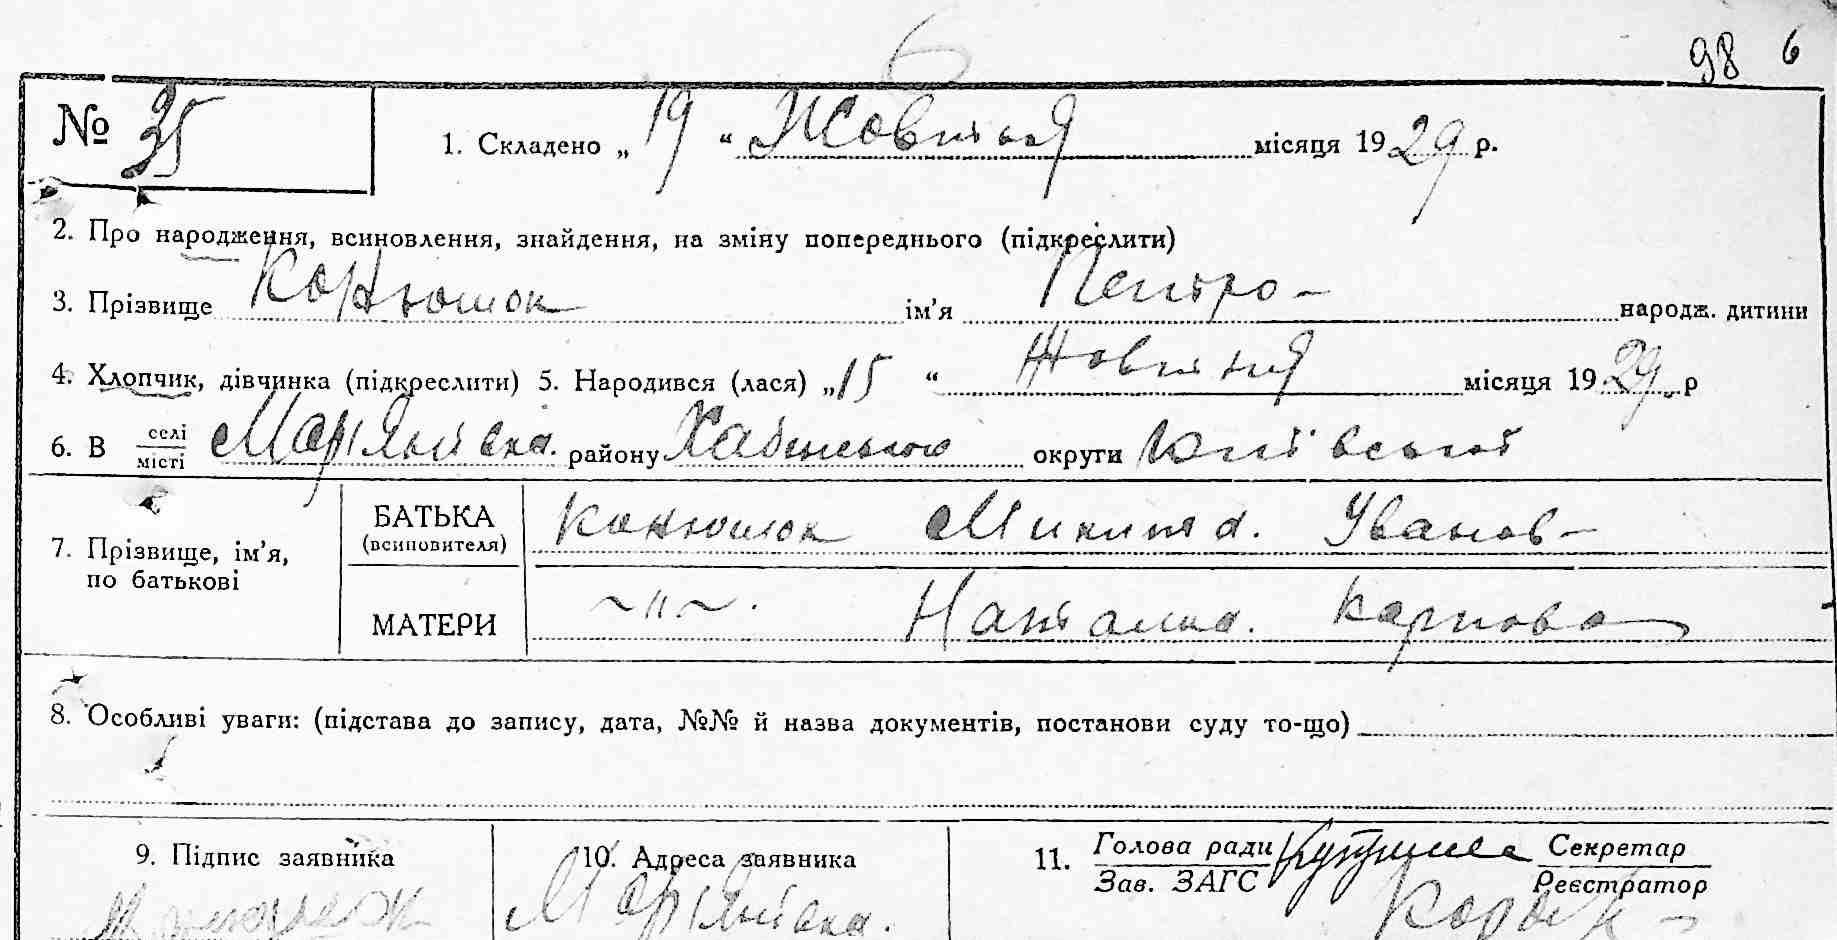 98 6
№ 35
1. Складено „ 19 “ Жовтня місяця 1929 р.
2. Про народження, всиновлення, знайдення, на зміну попереднього (підкреслити)
3. Прізвище Конюшок ім’я Петро – народж. дитини
4. Хлопчик, дівчинка (підкреслити) 5. Народився (лася) „15 “ Жовтня місяця 1929 р
6. В селі місті Мар'янівка. району Хабенського округи Київської
7. Прізвище, ім’я, по батькові
БАТЬКА (всиновителя) Конюшок Микита. Иванов–
МАТЕРИ ~"~. Наталка. Карпова
8. Особливі уваги: (підстава до запису, дата, №№ й назва документів, постанови суду то-що)
9. Підпис заявника 10. Адреса заявника 11. Голова ради Секретар
Зав. ЗАГС Реєстратор
Мар'янівка.